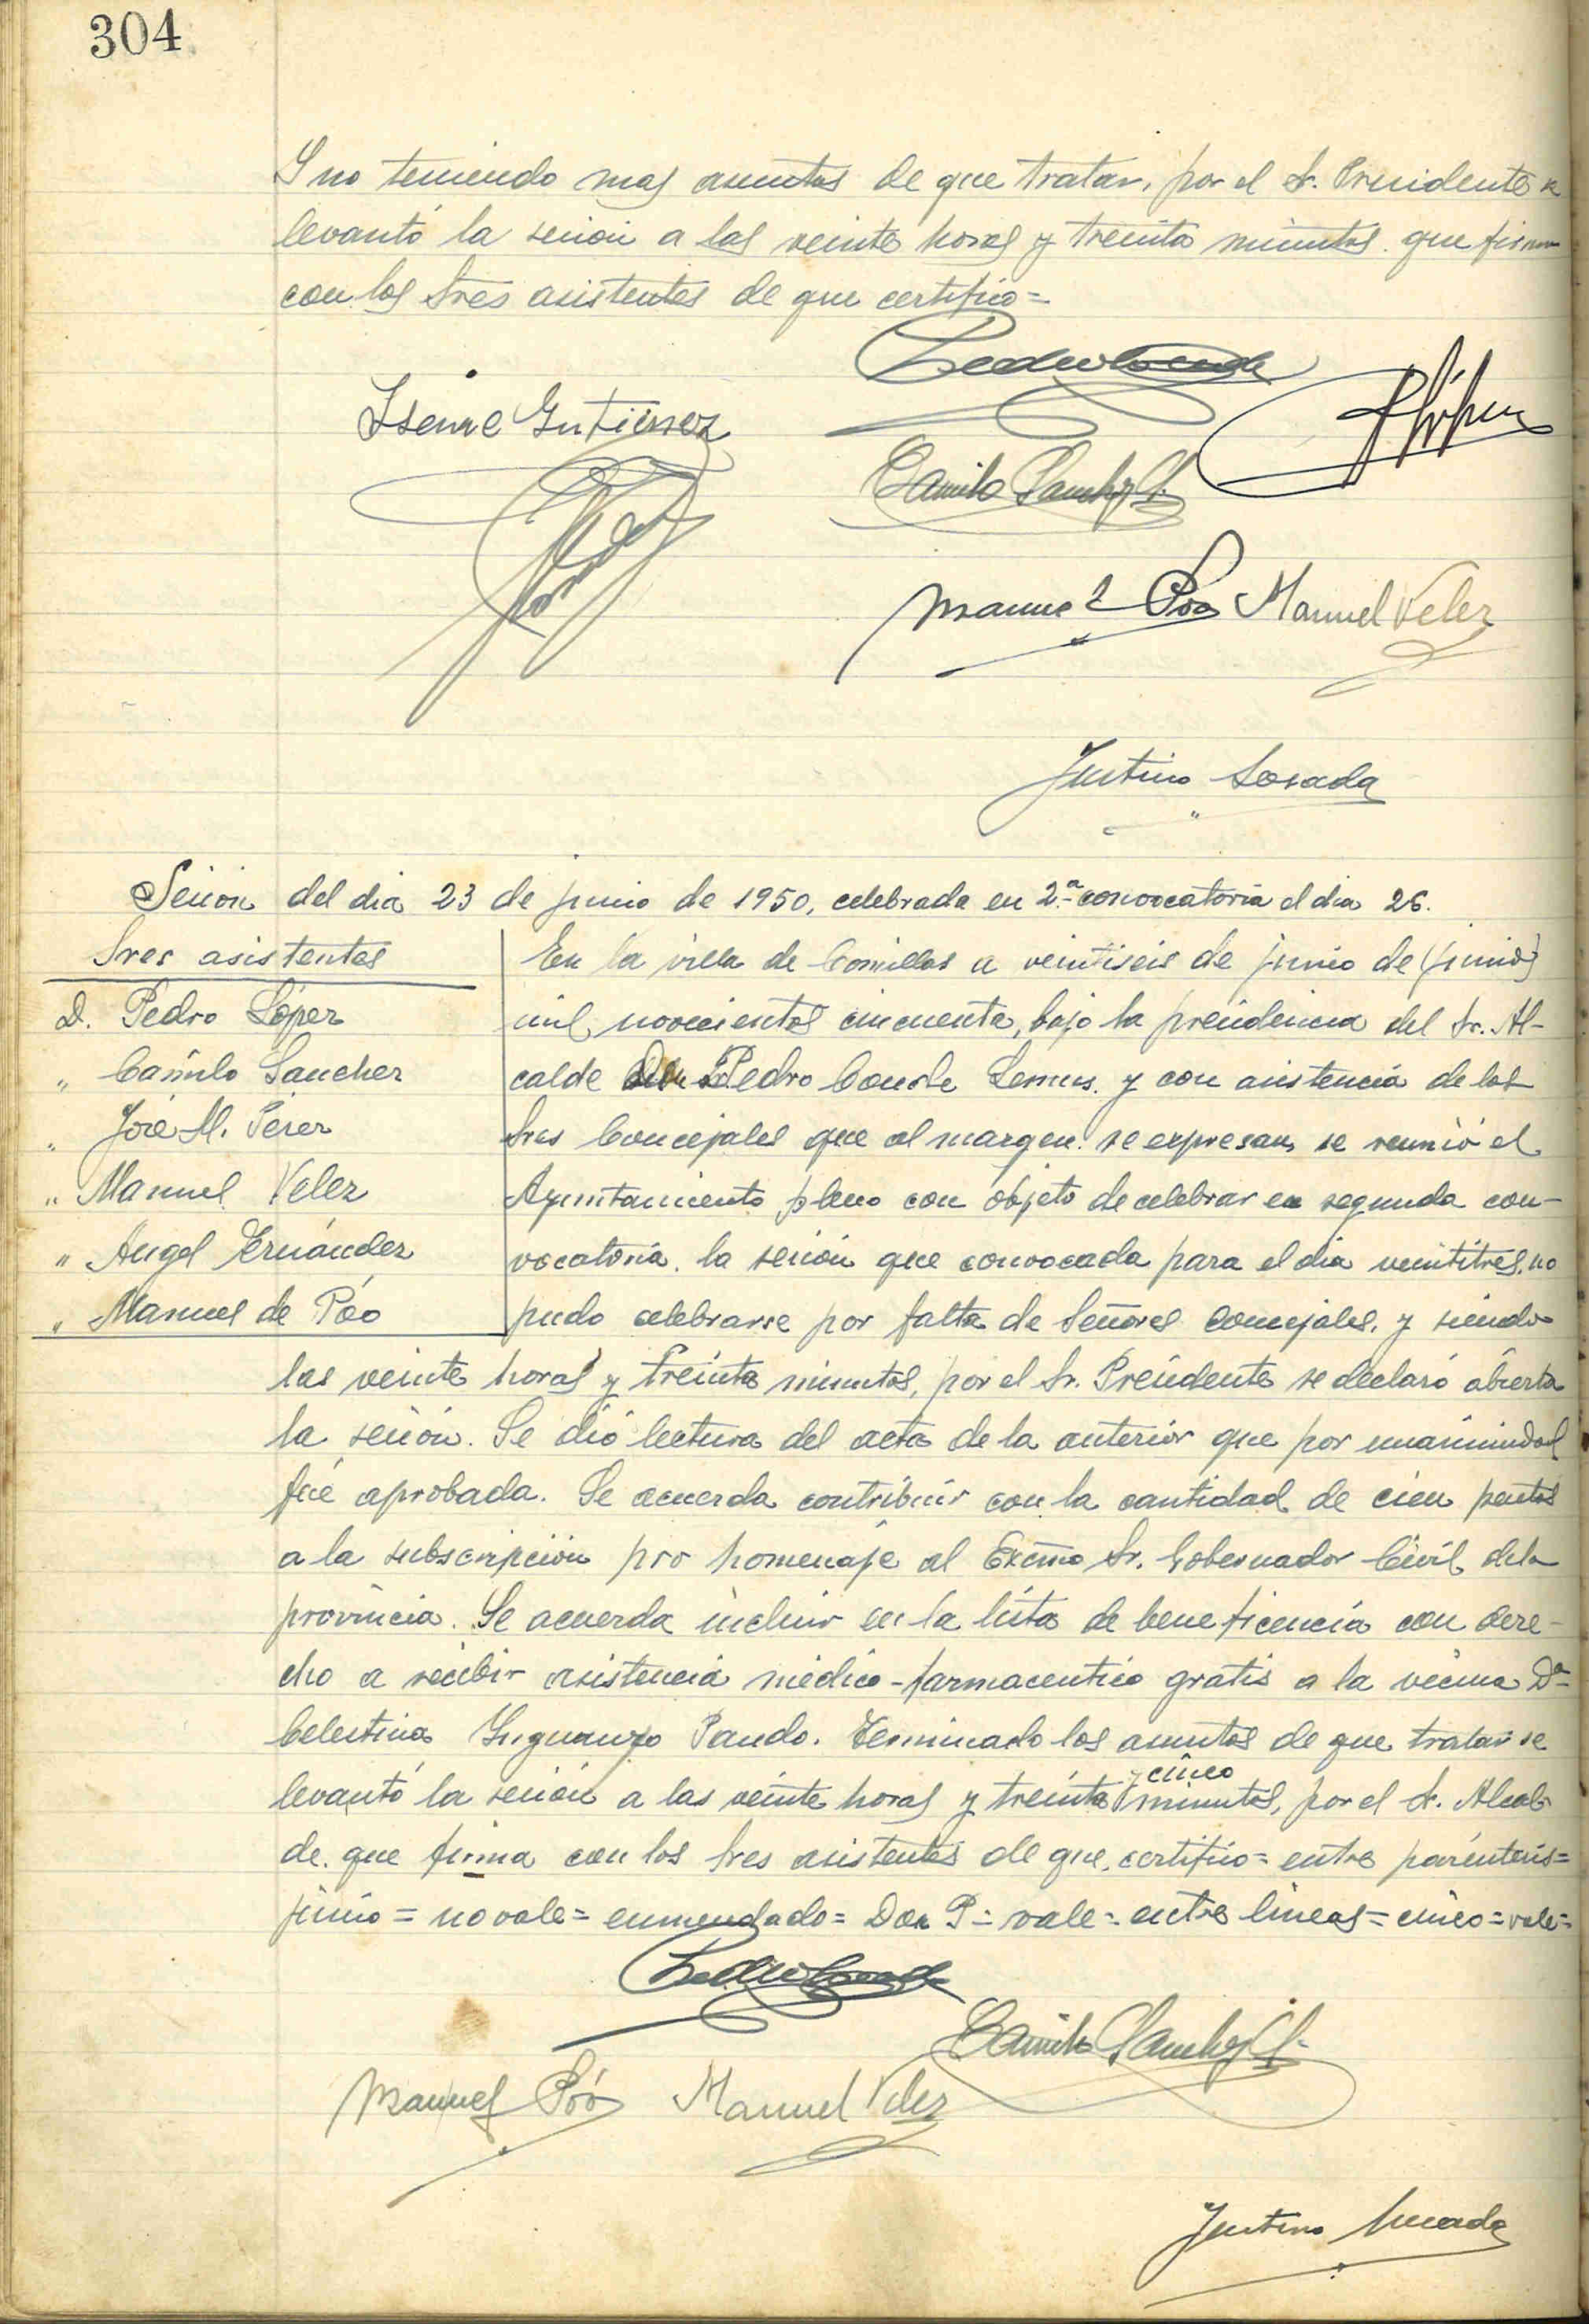 304
Y no teniendo mas asuntos de que tratar, por el Sr. Presidente se
levantó la sesion a las veinte horas y treinta minutos que firma
con los Sres asistentes de que certifico=
Pedro Conde
Gutierrez
Camilo Sanchez
Manuel Póo Manuel Velez
Justino Losada
Sesion del dia 23 de junio de 1950, celebrada en 2.ª convocatoria el dia 26.
Sres asistentes
D. Pedro López
" Camilo Sanchez
" José M. Pérez
" Manuel Velez
" Angel Fernández
" Manuel de Póo
En la villa de Comillas a veintiseis de junio de (junio)
mil novecientos cincuenta, bajo la presidencia del Sr. Al-
calde Don Pedro Conde Lemus. y con asistencia de los
Sres Concejales que al margen se expresan, se reunió el
Ayuntamiento pleno con objeto de celebrar en segunda con-
vocatoria. la sesión que convocada para el dia veintitres, no
pudo celebrarse por falta de Señores Concejales, y siendo
las veinte horas y treinta minutos, por el Sr. Presidente se declaró abierta
la sesión. Se dió lectura del acta de la anterior que por unanimidad
fué aprobada. Se acuerda contribuir con la cantidad de cien pesetas
a la subscripción pro homenaje al Excmo Sr. Gobernador Civil de la
provincia. Se acuerda incluir en la lista de beneficencia con dere-
cho a recibir asistencia médico-farmaceutico gratis a la vecina Dª
Celestina Inguanzo Pando. Terminado los asuntos de que tratar se
levantó la sesión a las veinte horas y treinta y cinco minutos, por el Sr. Alcal-
de. que firma con los Sres asistentes de que certifico= entre paréntesis=
junio = no vale= enmendado= Don P= vale= entre lineas= cinco= vale=
Pedro Conde
Camilo Sanchez
Manuel Póo Manuel Velez
Justino Losada